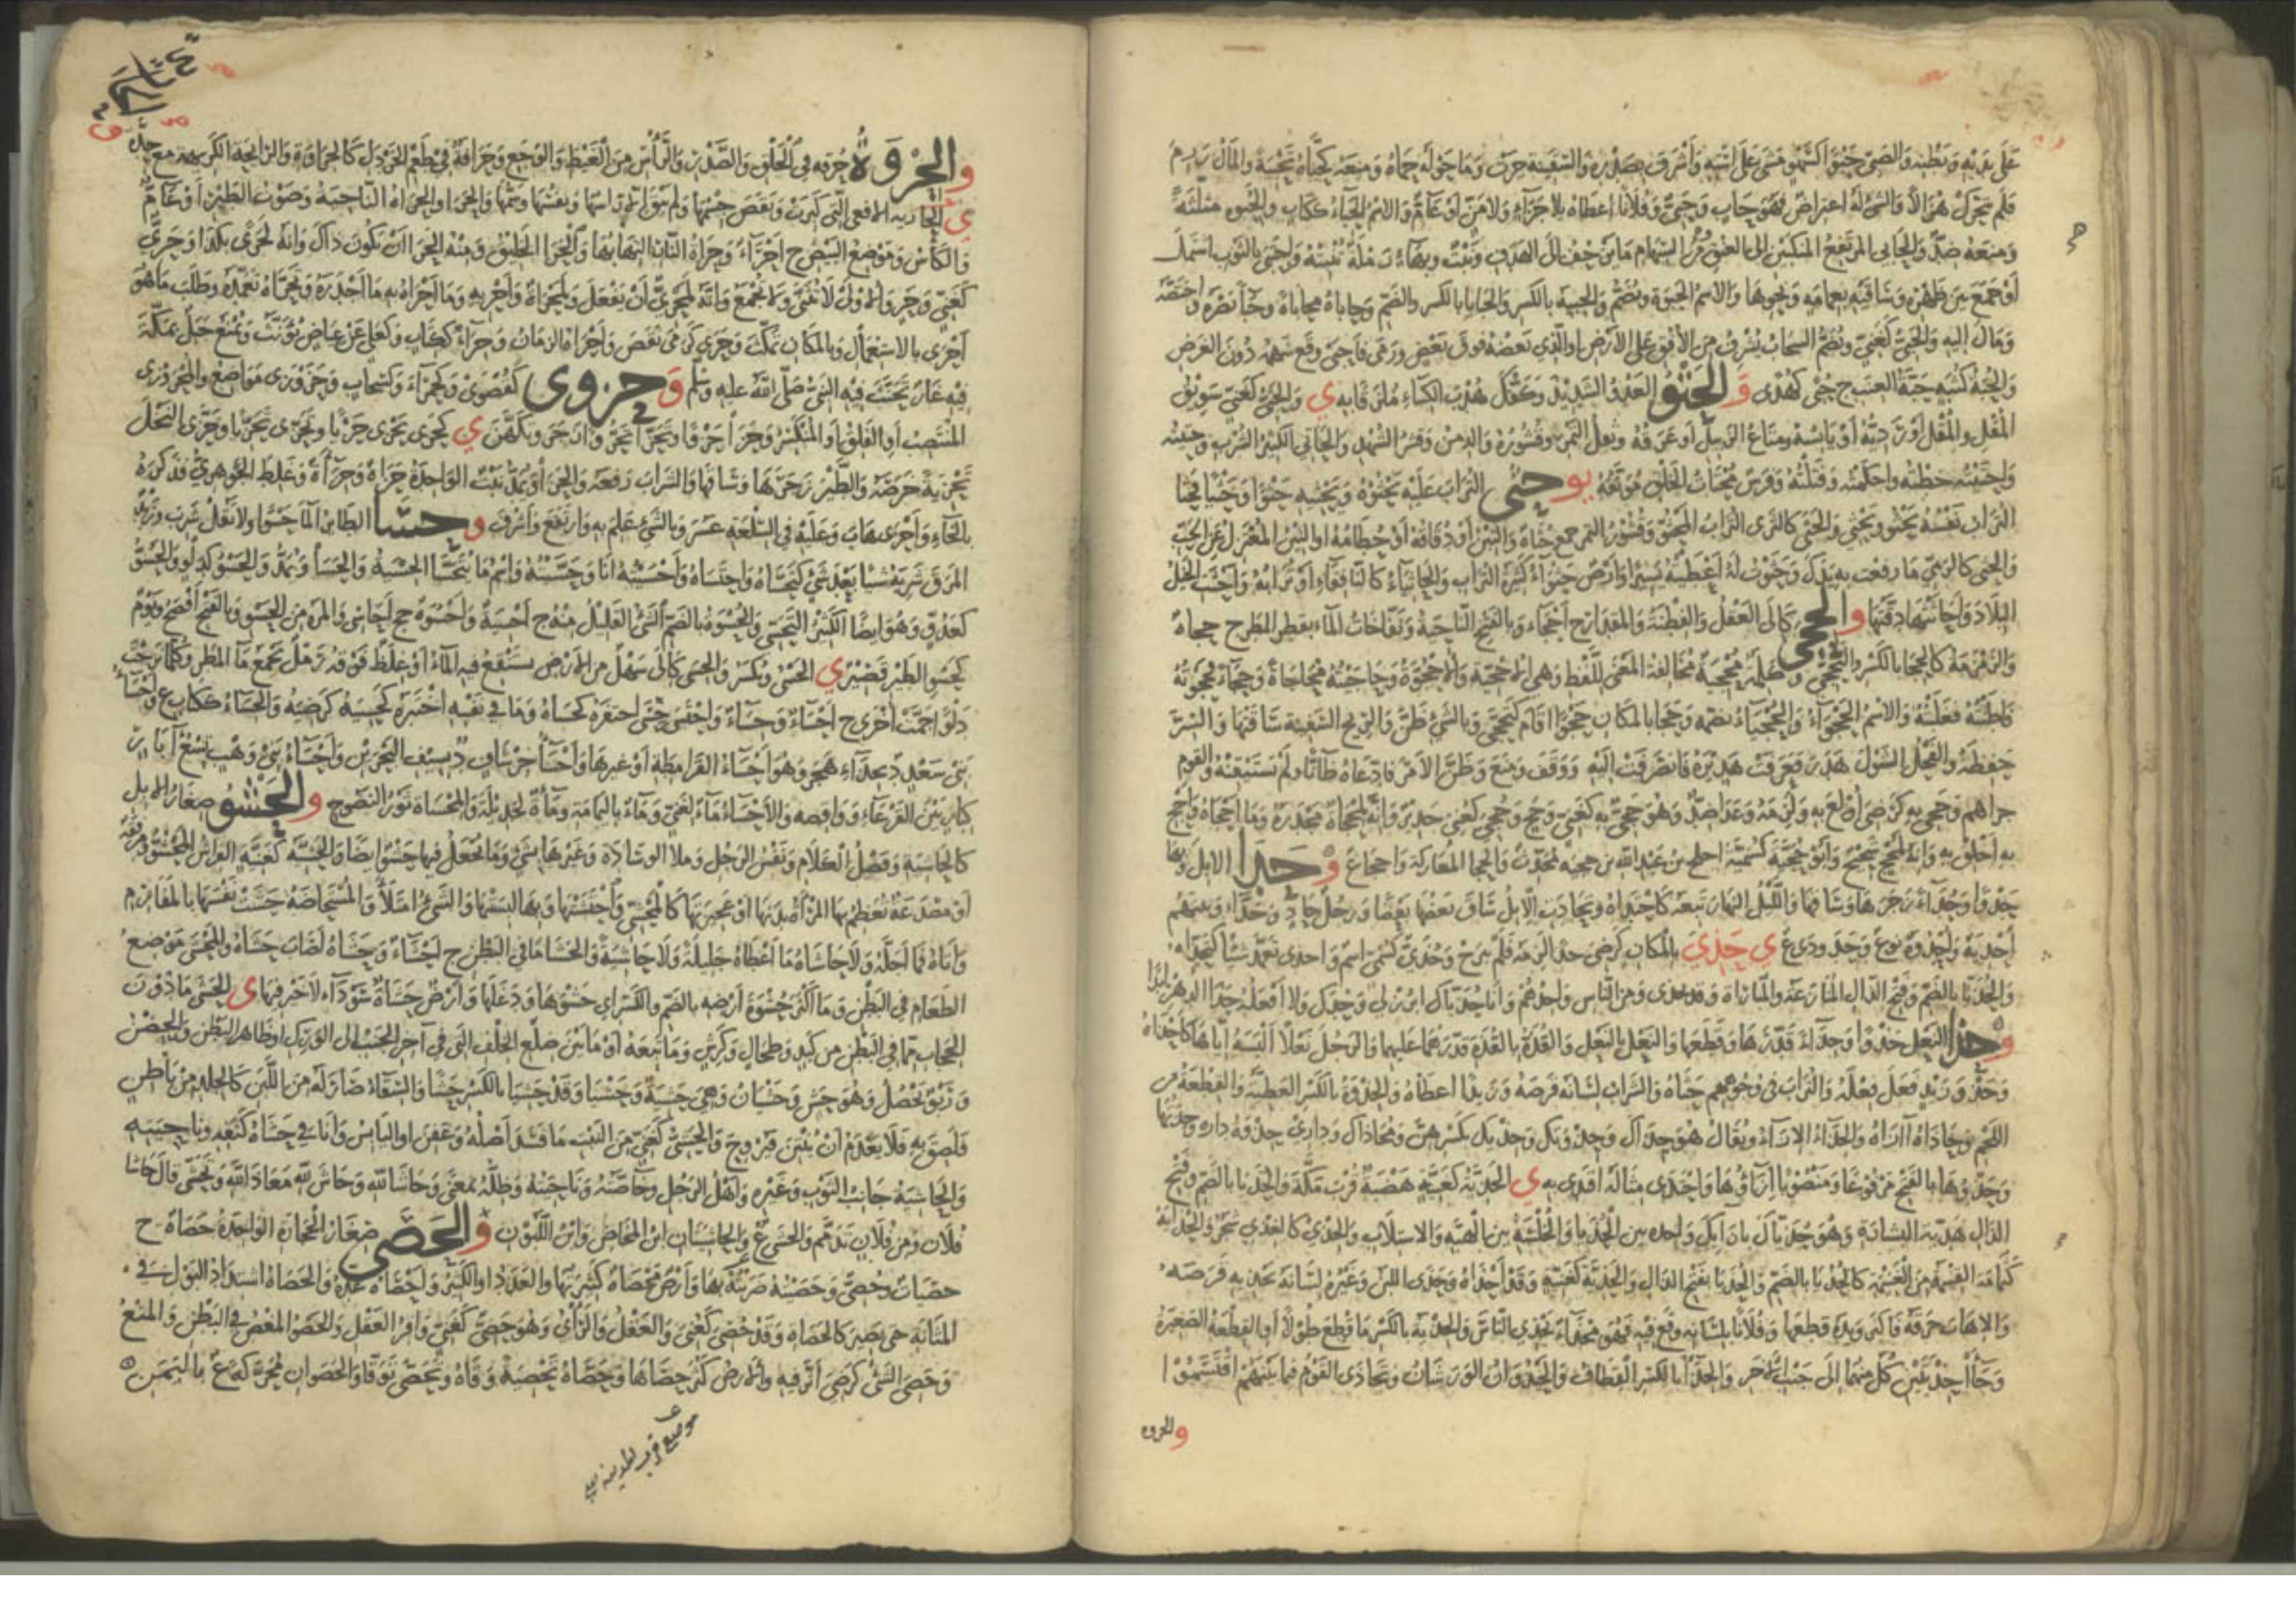 على يديه وبطنه والصبي حبوا كسهو مشى على استه وأشرف بصدره والسفينة جرت وما حوله حماه ومنعه كحباه تحبية والمال رزم
فلم يتحرك هزالا والشيء له اعترض فهو حاب وحبي وفلانا أعطاه بلا جزاء ولا من أو عام والاسم الحباء ككتاب والحبوة مثلثة
ومنعه ضد والحابي المرتفع المنكبين إلى العنق ومن السهام ما يزحف إلى الهدف ونبت وبهاء رملة تنبته واحتبى بالثوب اشتمل
أو جمع بين ظهره وساقيه بعمامة ونحوها والاسم الحبوة ويضم والحبية بالكسر والحباء بالكسر والضم وحاباه محاباة وحباء نصره واختصه
ومال إليه والحبي كغني ويضم السحاب يشرف من الأفق على الأرض أو الذي بعضه فوق بعض ورمى فأحبى وقع سهمه دون الغرض
والحبة كثبة حبة العنب ج حبى كهدى و الحتو العدو الشديد وكفك هدب الكساء ملزقا به ي والحتي كغني سويق
المقل والمقل أو رديه أو يابسه ومتاع الزبيل أو عرقه وثفل التمر وقشوره والدمن وقشر الشهد والحاتي الكثير الشرب وحتيته
وأحتيته خطته وأحكمته وفتلته وفرس محتات الخلق موثقه يو حثى التراب عليه يحثوه ويحثيه حثوا وحثيا فحثا
التراب نفسه يحثو ويحثي والحثى كالثرى التراب المحثو وقشور التمر جمع حثاة والتبن أو دقاقه أو حطامه أو التبن المعتزل عن الحب
والحثي كالرمي ما رفعت به يدك وحثوت له أعطيته يسيرا وأرض حثواء كثيرة التراب والحاثياء كالنافقاء أو ترابه وأحثت الخيل
البلاد وأحاثتها دقتها و الحجى كإلى العقل والفطنة والمقدار ج أحجاء وبالفتح الناحية ونفاخات الماء بقطر المطر ج حجاة
والزمزمة كالحجا بالكسر والتحجي وكلمة محجية مخالفة المعنى للفظ وهي الأحجية والأحجوة وحاجيته محاجاة وحجاء فحجوته
فاطنته فغلبته والاسم الحجوى والحجياء بضمه وحجا بالمكان حجوا أقام كتحجى وبالشيء ظن والريح السفينة ساقتها والسر
حفظه والفحل الشول هدر فعرفت هديره فانصرفت إليه ووقف ومنع وظن الأمر فادعاه ظانا ولم يستيقنه والقوم
جزاهم وحجي به كرضي أولع به ولزمه وعدا ضد وهو حجي به كغني وحج وحجى كفتى جدير وإنه لمحجاة مجدرة وما أحجاه وأحج
به أخلق به وإنه لحج شحيح وأبو حجية كسمية أجلح بن عبد الله بن حجية محدث والحجا المعاركة وأحجاء ع و حدا الإبل وبها
حدوا وحداء زجرها وساقها والليل النهار تبعه كاحتداه وتحادت الإبل ساق بعضها بعضا ورجل حاد وحداء وبينهم
أحدية وأحدوة نوع ي حدي بالمكان كرضي حدا لزمه فلم يبرح وحدي كسمي اسم وأحدى تعمد شيئا كتحداه
والحديا بالضم وفتح الدال المنازعة والمباراة وقد تحدى ومن الناس واحدهم وأنا حدياك ابرز لي وحدك ولا أفعله حدا الدهر أبدا
و حذا النعل حذوا وحذاء قدرها وقطعها والنعل بالنعل والقذة بالقذة قدرهما عليهما والرجل نعلا ألبسه إياها كأحذاه
وحذو زيد فعل فعله والتراب في وجوههم حثاه والشراب لسانه قرصه وزيدا أعطاه والحذوة بالكسر العطية والقطعة من
اللحم وحاذاه آزاه والحذاء الإزاء ويقال هو حذاءك وحذوتك وحذتك بكسرهن ومحاذاك وداري حذوة داره وحذتها
وحذوها بالفتح مرفوعا ومنصوبا إزاؤها واحتذى مثاله اقتدى به ي الحذية كغنية هضبة قرب مكة والحذيا بالضم وفتح
الذال هدية البشارة وهو حذياك بازائك والحذي كالغذي شجر والحذاية
كثمامة القسمة من الغنيمة كالحذيا بالضم والحذيا بفتح الذال والحذية كغنية وقد أحذاه وحذى اللبن وغيره لسانه يحذيه قرصه
والإهاب خرقه فأكثر ويده قطعها وفلانا بلسانه وقع فيه فهو محذاء يحذي الناس والحذية بالكسر ما قطع طولا أو القطعة الصغيرة
وجاآ حذيتين كل منهما إلى جنب الآخر والحذاء بالكسر القطاف والحذوان الورشان وتحاذى القوم فيما بينهم اقتسموا
والحروه
والحروة حرقة في الحلق والصدر والرأس من الغيظ والوجع وحرافة في طعم الخردل كالحراوة والرائحة الكريهة مع حدة
ي الحارية الأفعى التي كبرت ونقص جسمها ولم يبق إلا رأسها ونفسها وسمها والحرا والحراة الناحية وصوت الطير أو عام
والكناس وموضع البيض ج أحراء وحراة النار التهابها والحرا الخليق ومنه الحرا أن يكون ذاك وإنه لحرى بكذا وحري
كغني وحر والأولى لا تثنى ولا تجمع وإنه لمحرى أن يفعل ولمحراة وأحر به وما أحراه به ما أجدره وتحراه تعمده وطلب ما هو
أحرى بالاستعمال وبالمكان تمكث وحرى كرمى نقص وأحراه الزمان وحراء ككتاب وكعلى عن عياض يؤنث ويمنع جبل بمكة
فيه غار تحنث فيه النبي صلى الله عليه وسلم و حزوى كقصوى وكحمراء وكسحاب وحزوزى مواضع والمحزوزي
المنتصب أو القلق أو المنكسر وحزا حزوا وتحزى زجر وتكهن ي كحزى يحزي حزيا وتحزى تحزيا وحزى النخل
تحزية خرصه والطير زجرها وساقها والسراب رفعه والحزا ويمد نبت الواحدة حزاة وحزاءة وغلط الجوهري فذكره
بالخاء وأحزى هاب وعليه في السلعة عسر وبالشيء علم به وارتفع وأشرف و حسا الطائر الماء حسوا ولا تقل شرب وزيد
المرق شربه شيئا بعد شيء كتحساه واحتساه وأحسيته أنا وحسيته واسم ما يتحسى الحسية والحسا ويمد والحسو كدلو والحسو
كعدو وهو أيضا الكثير التحسي والحسوة بالضم الشيء القليل منه ج أحسية وأحسوة جج أحاسي والمرة من الحسو وبالفتح أفصح ويوم
كحسو الطير قصير ي الحسي ويكسر والحسى كإلى سهل من الأرض يستنقع فيه الماء أو غلظ فوقه رمل يجمع ماء المطر وكلما نزحت
دلوا جمت أخرى ج أحساء وحساء واحتسى حسى احتفره كحساه وما في نفسه اختبره كحسيه كرضيه والحساء ككتاب ع وأحساء
بني سعد د بحذاء هجر وهو أحساء القرامطة أو غيرها وأحساء خرشاف د بسيف البحرين وأحساء بني وهب تسع آبار
كبار بين القرعاء وواقصة والأحساء ماء لغني وماء باليمامة وماءة لجديلة والمحساة ثور النضوح و الحشو صغار الإبل
كالحاشية وفضل الكلام ونفس الرجل وملء الوسادة وغيرها بشيء وما يجعل فيها حشو أيضا والحشية كغنية الفراش المحشو ومرفقة
أو مصدغة تعظم بها المرأة بدنها أو عجيزتها كالمحشى واحتشتها وبها لبستها والشيء امتلأ والمستحاضة حشت نفسها بالمفارم
وأتاه فما أجله ولا حاشاه ما أعطاه جليلة ولا حاشية والحشا ما في البطن ج أحشاء وحشاه أصاب حشاه والمحشى موضع
الطعام في البطن وما أكثر حشوة أرضه بالضم والكسر أي حشوها ودغلها وأرض حشاة سوداء لا خير فيها ي الحشى ما دون
الحجاب مما في البطن من كبد وطحال وكرش وما تبعه أو ما بين ضلع الخلف التي في آخر الجنب إلى الورك أو ظاهر البطن والحضن
وربو يحصل وهو حش وحشيان وهي حشية وحشيا وقد حشيا بالكسر حشا والسقاء صار له من اللبن كالجلد من باطن
فلصق به فلا يعدم أن ينتن فيروح والحشي كغني من النبت ما فسد أصله وعفن أو اليابس وأنا في حشاه كنفه وناحيته
والحاشية جانب الثوب وغيره وأهل الرجل وخاصته وناحيته وظله بمعنى وحاشا لله وحاش لله معاذ الله وتحشى قال حاشا
فلان ومن فلان تذمم والحشى ع والحاشيتان ابن المخاض وابن اللبون و الحصى صغار الحجارة الواحدة حصاة ج
حصيات وحصي وحصيته ضربته بها وأرض محصاة كثيرتها والعدد أو الكثير وأحصاه عده والحصاة اشتداد البول في
المثانة حتى يصير كالحصاة وقد حصي كعني والعقل والرأي وهو حصي كغني وافر العقل والحصو المغص في البطن والمنع
وحصي الشيء كرضي أثر فيه والأرض كثر حصاها وحصاه تحصية وقاه وتحصى توقى والحصوان محركة ع باليمن
موضع قرب المدينة